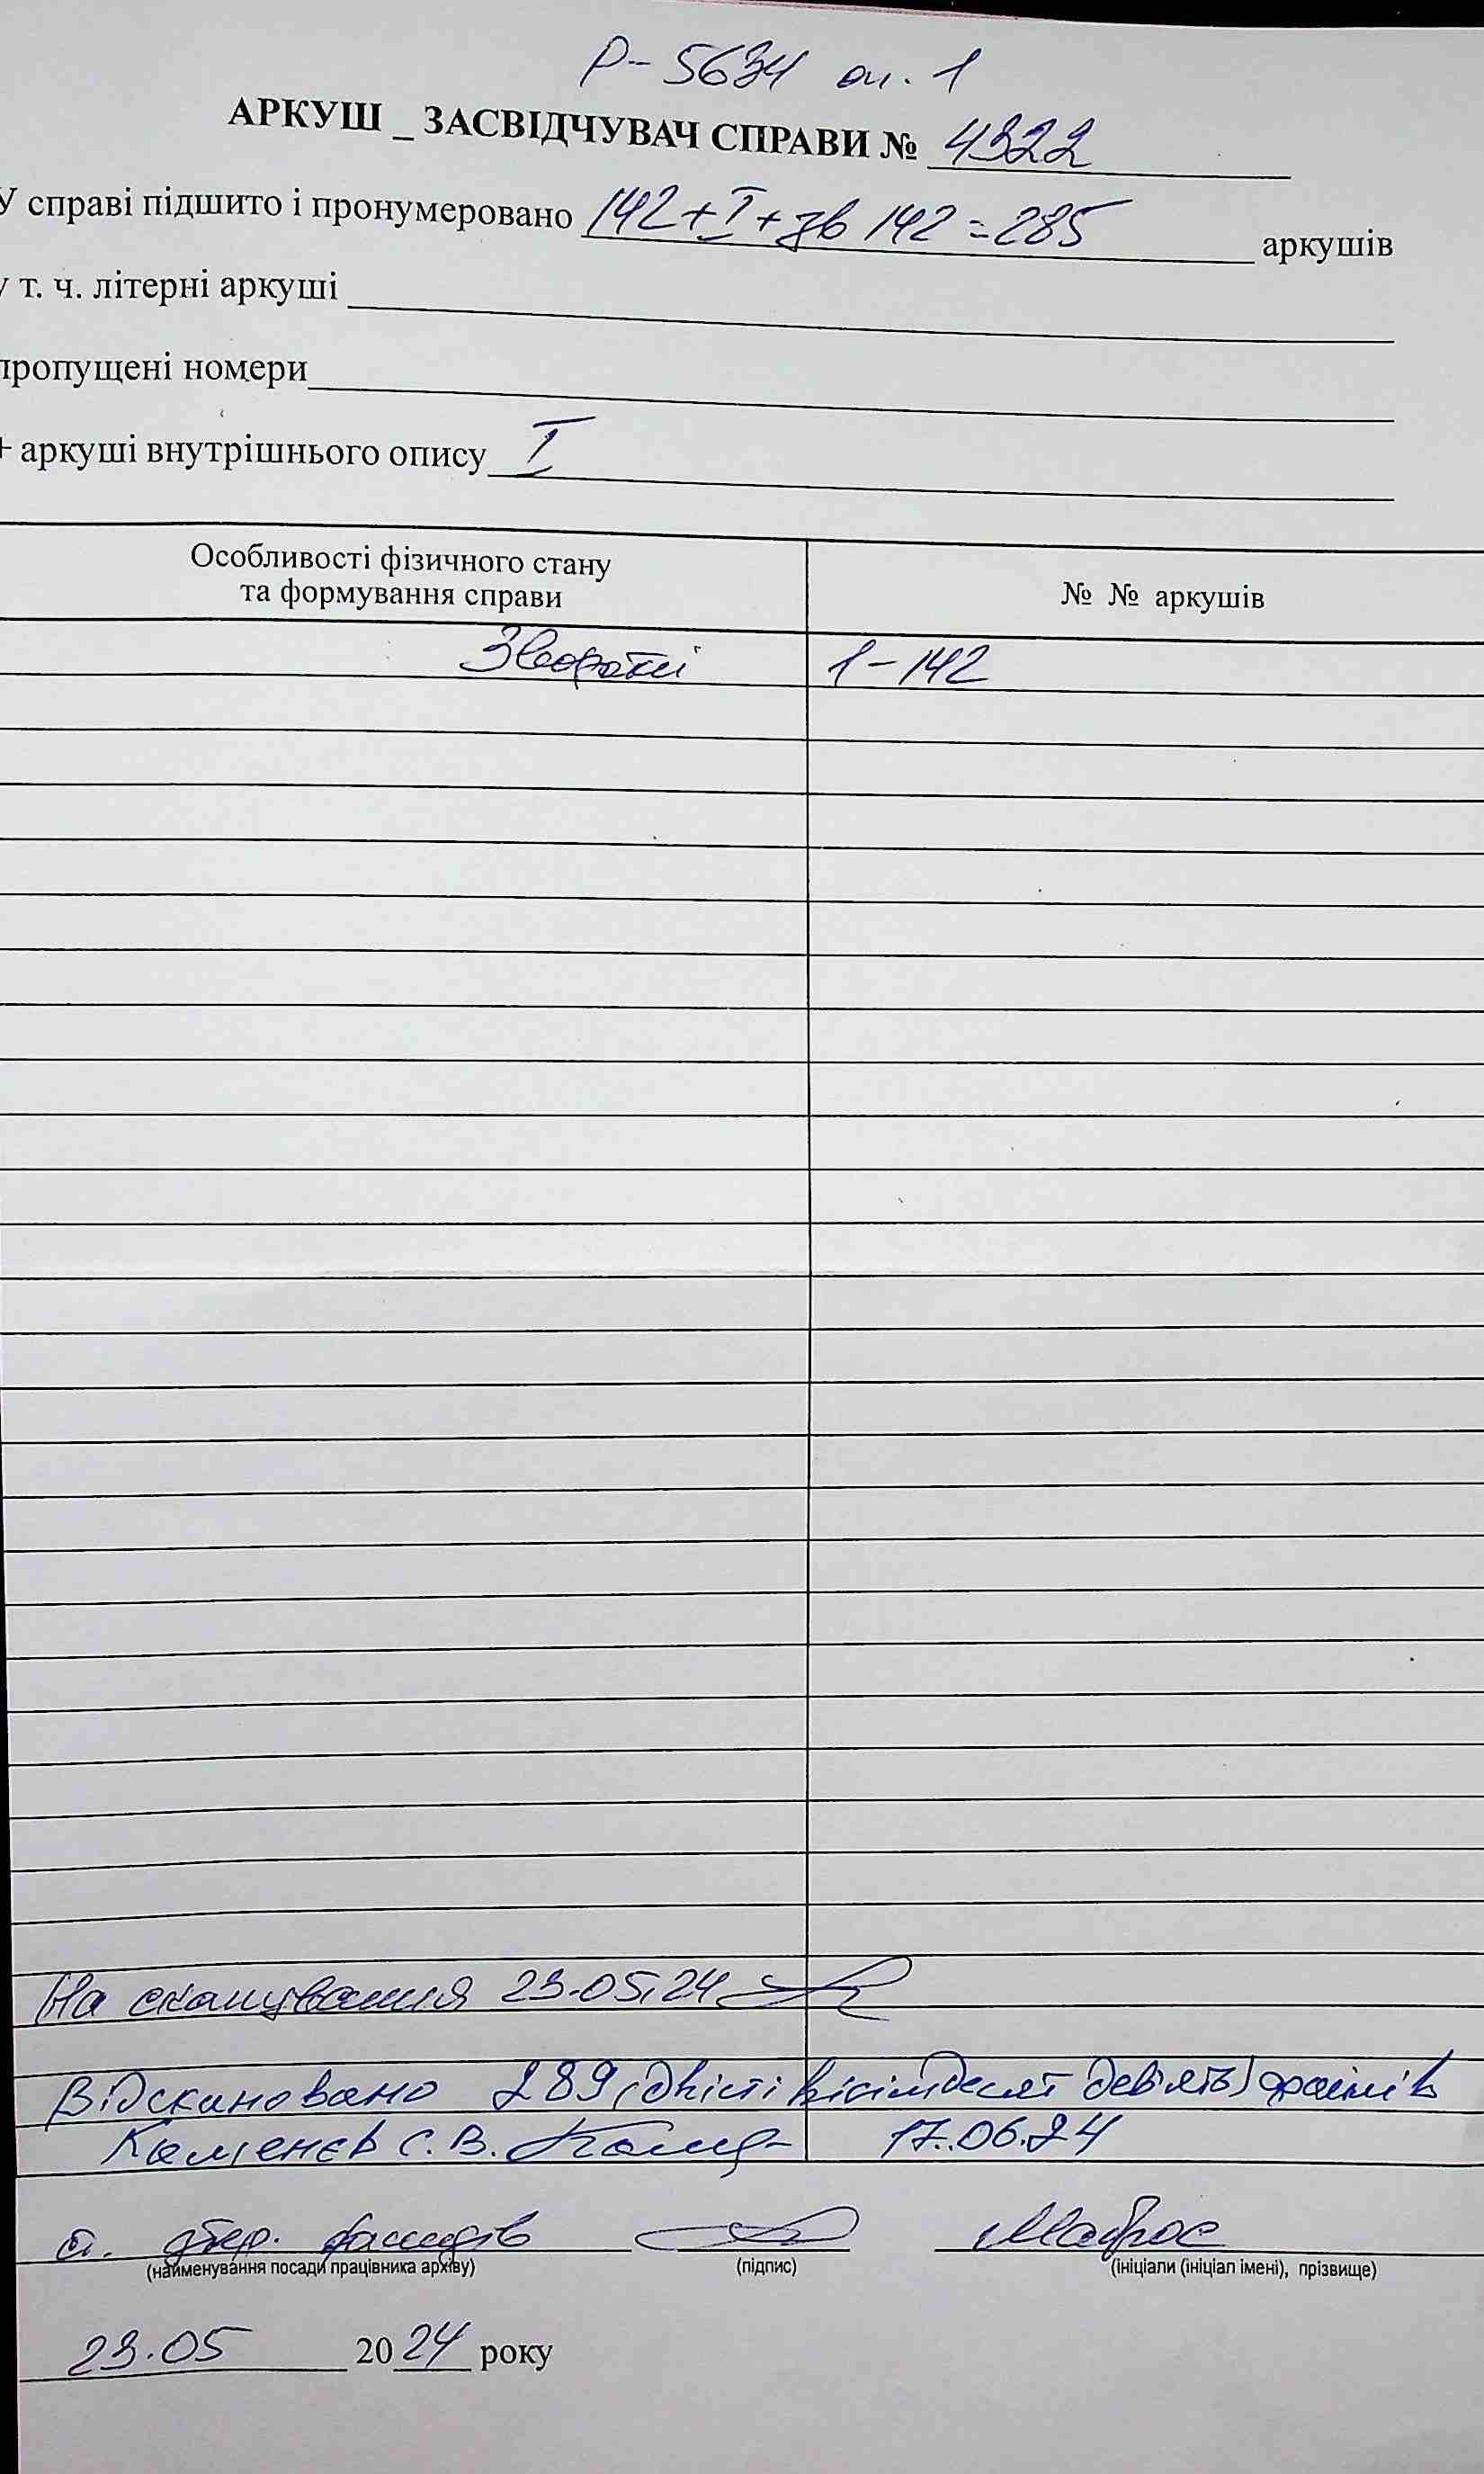 Р- 5634 оп. 1
АРКУШ _ ЗАСВІДЧУВАЧ СПРАВИ № 4322
У справі підшито і пронумеровано 142 + I + зв 142 = 285 аркушів
у т. ч. літерні аркуші
пропущені номери
+ аркуші внутрішнього опису I
Особливості фізичного стану та формування справи № № аркушів
Зворотні 1-142
На сканування 23.05.24
Відскановано 289 (двісті вісімдесят дев'ять) файлів
Каменєв С. В. 17.06.24
ст. збер. фондів
(найменування посади працівника архіву) (підпис) (ініціали (ініціал імені), прізвище)
23.05 2024 року